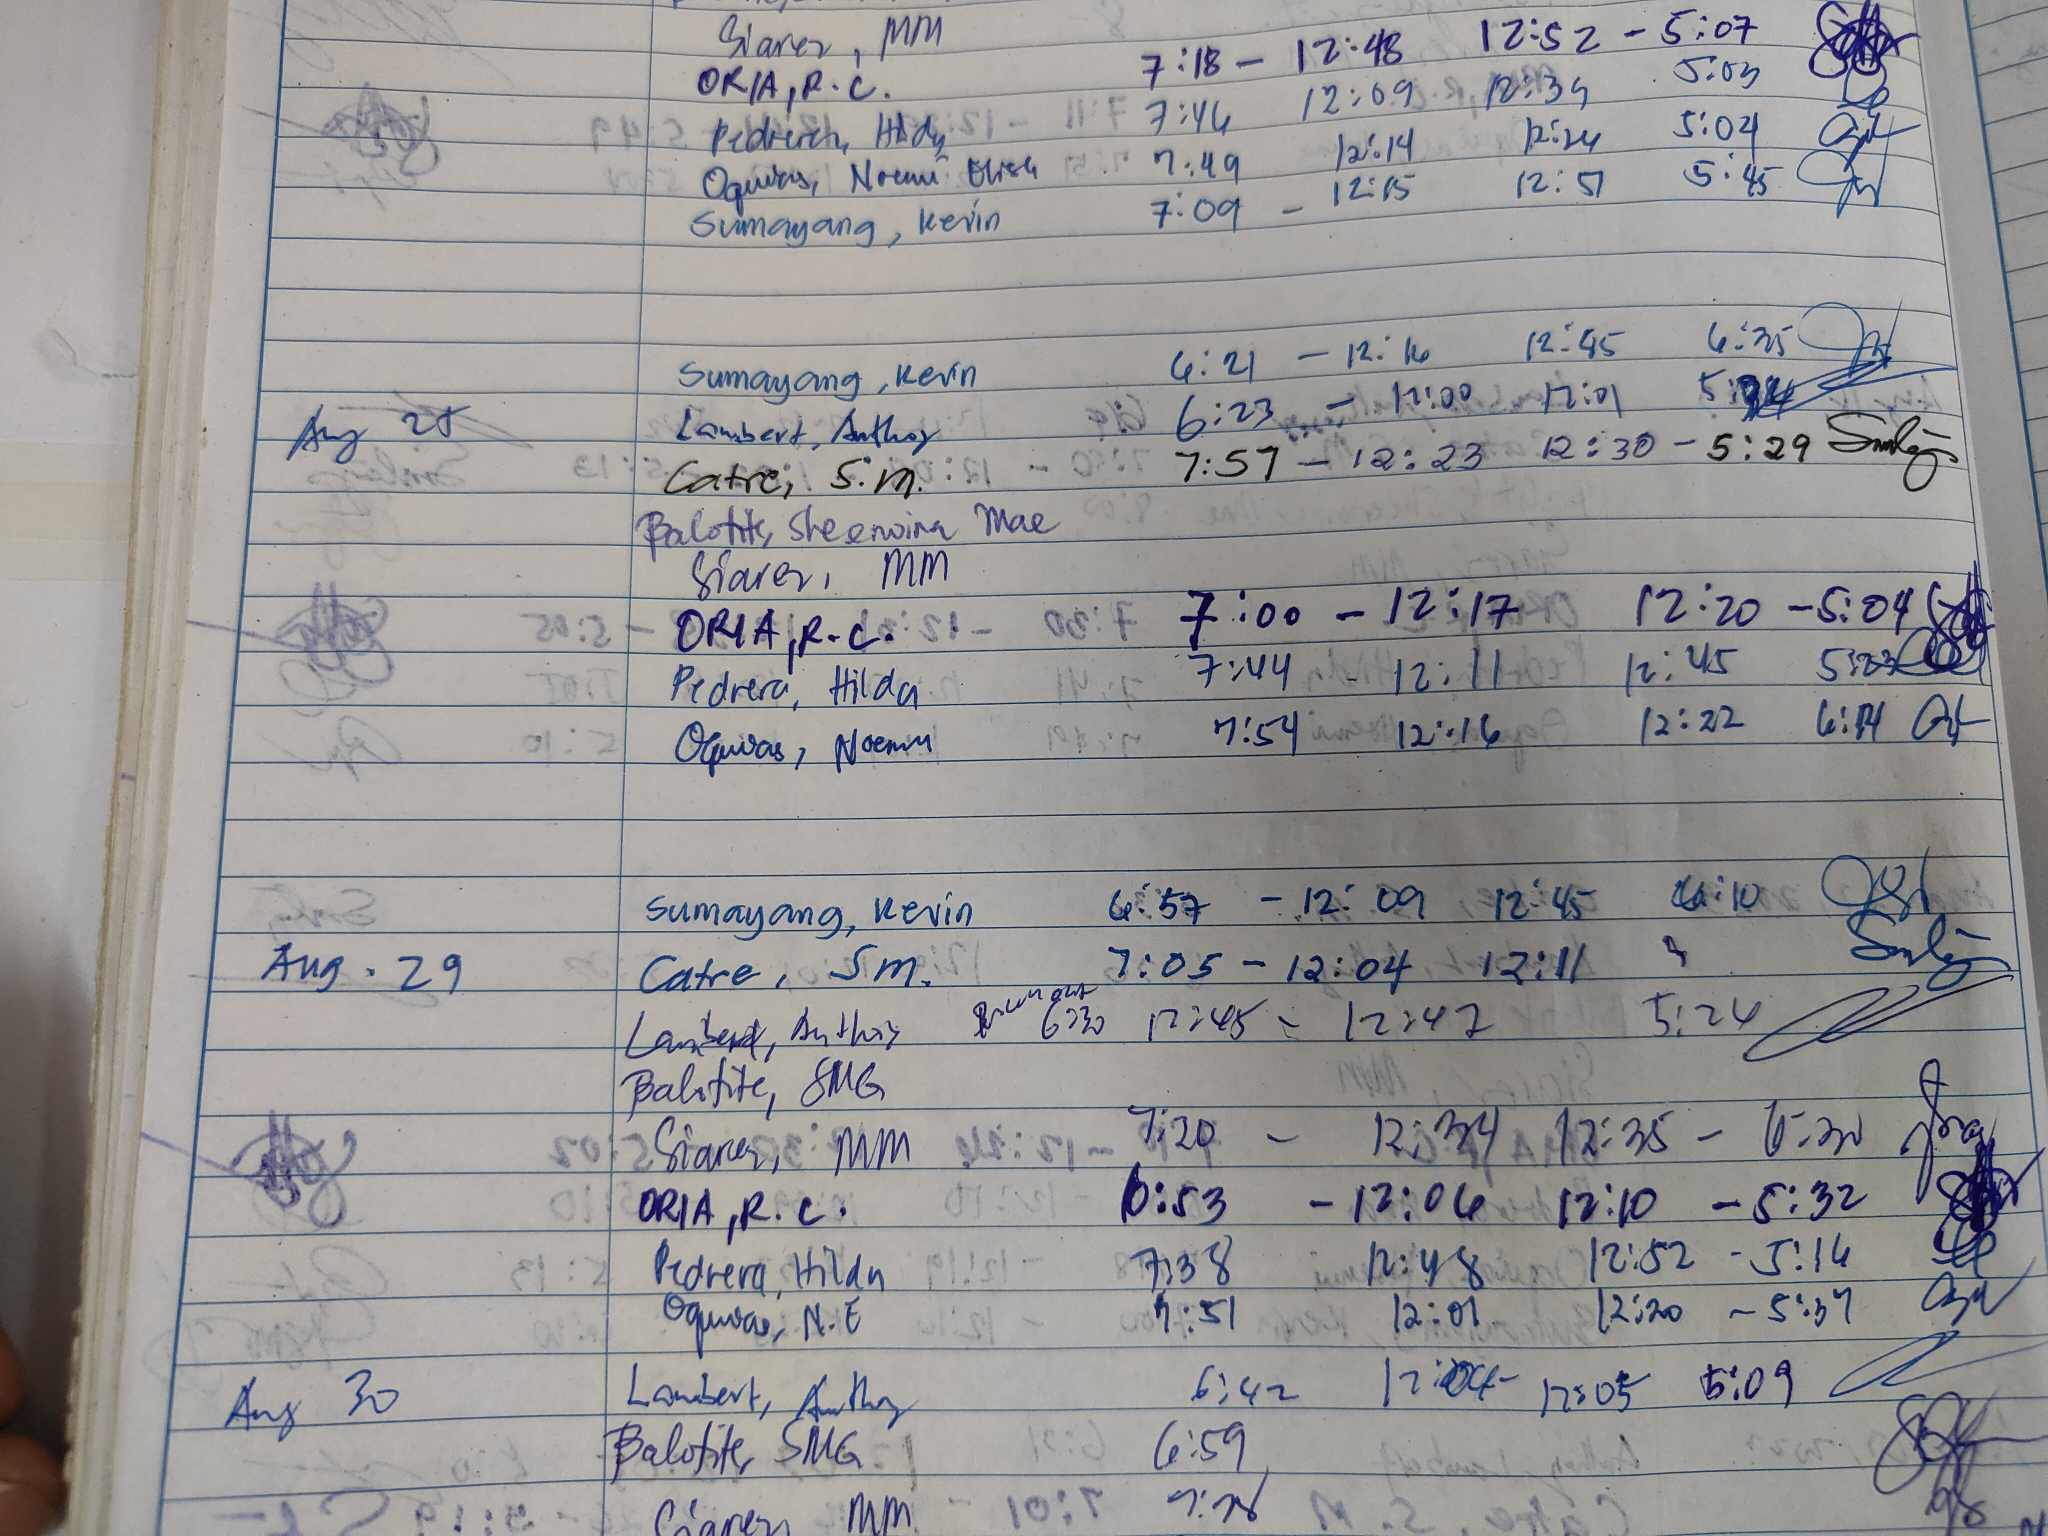 Siarez, MM
ORIA, R.C. 7:18 - 12:48 12:52 - 5:07
Pedrera, Hilda 7:46 12:09 12:39 5:03
Oquias, Noemi 7:49 12:14 12:24 5:04
Sumayang, Kevin 7:09 - 12:15 12:51 5:45
Sumayang, Kevin 6:21 - 12:16 12:45 6:35
Aug 28 Lambert, Anthony 6:23 - 12:00 12:01
Catre, S.M. 7:57 - 12:23 12:30 - 5:29
Balotite, Sheenvina Mae
Siarez, MM
ORIA, R.C. 7:00 - 12:17 12:20 - 5:04
Pedrera, Hilda 7:44 - 12:11 12:45 5:23
Oquias, Noemi 7:54 12:16 12:22 6:14
Sumayang, Kevin 6:57 - 12:09 12:45 6:10
Aug. 29 Catre, SM. 7:05 - 12:04 12:11
Lambert, Anthony 6:30 12:45 - 12:47 5:24
Balotite, SMG
Siarez, MM 7:20 - 12:34 12:35 - 6:30
ORIA, R.C. 6:53 - 12:06 12:10 - 5:32
Pedrera, Hilda 7:38 12:48 12:52 - 5:16
Oquias, N.E 7:51 12:01 12:20 - 5:37
Aug 30 Lambert, Anthony 6:42 12:04 - 12:05 5:09
Balotite, SMG 6:59
Siarez, MM